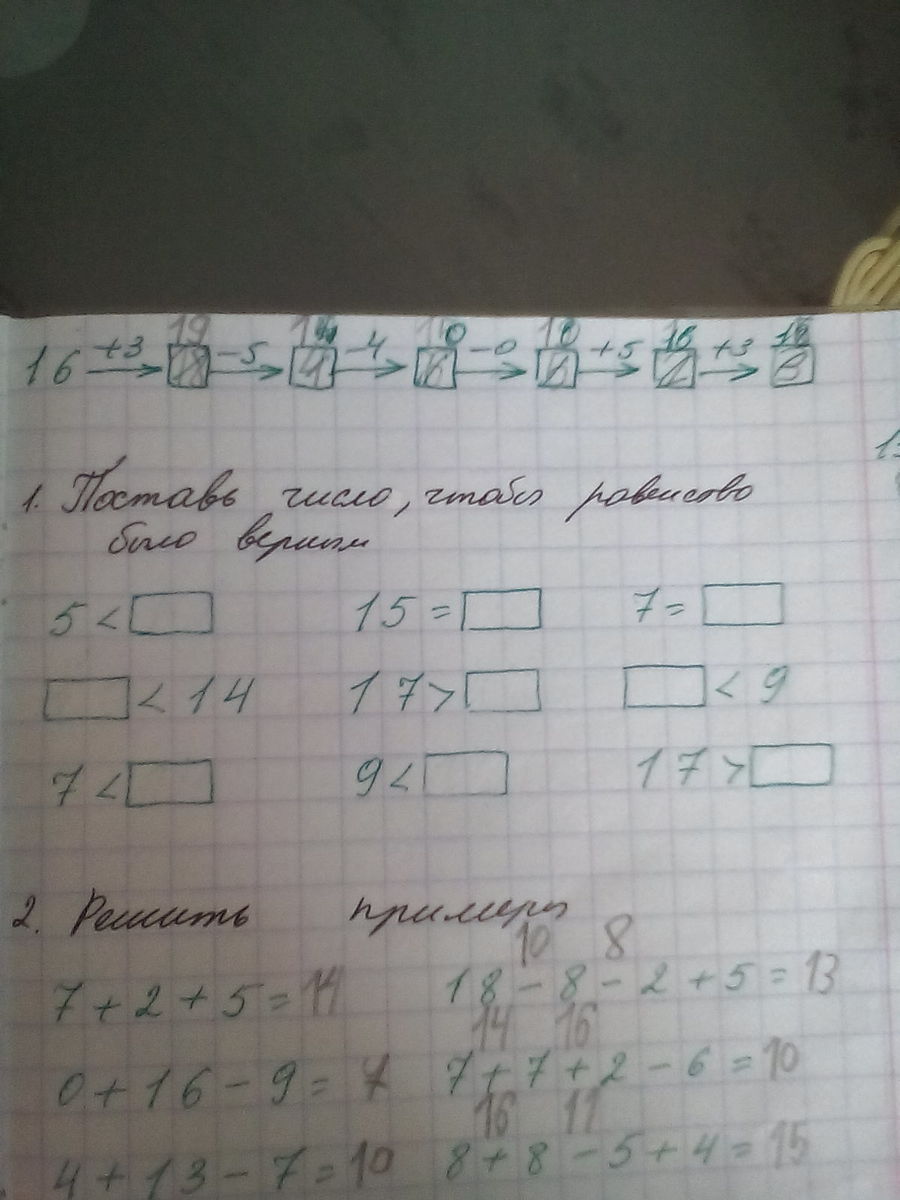 19 14 10 10
16 +3 -5 -4 -0 +5 +3
1. Поставь число, чтобы равенство
было верным
5 < 15 = 7 =
< 14 17 > < 9
7 < 9 < 17 >
2. Решить примеры
10 8
7 + 2 + 5 = 14 18 - 8 - 2 + 5 = 13
14 16
0 + 16 - 9 = 7 7 + 7 + 2 - 6 = 10
16 11
4 + 13 - 7 = 10 8 + 8 - 5 + 4 = 15